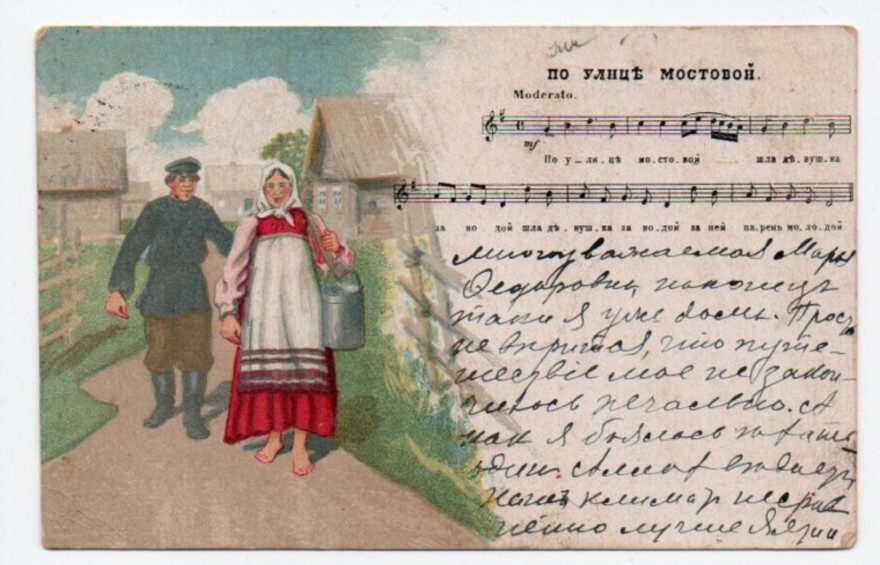 ПО УЛИЦѢ МОСТОВОЙ.
Moderato.
mf
По у-ли-цѣ мо-сто-вой шла дѣ-вуш-ка
за во-дой шла дѣ-вуш-ка за во-дой за ней па-рень мо-ло-дой
многоуважаемая Марья
Федоровна, наконецъ
таки я уже дома. Прост
не верится, что путе-
шествіе мое не закон-
чилось печально. А
как я боялась
нашъ климат несрав
ненно лучше